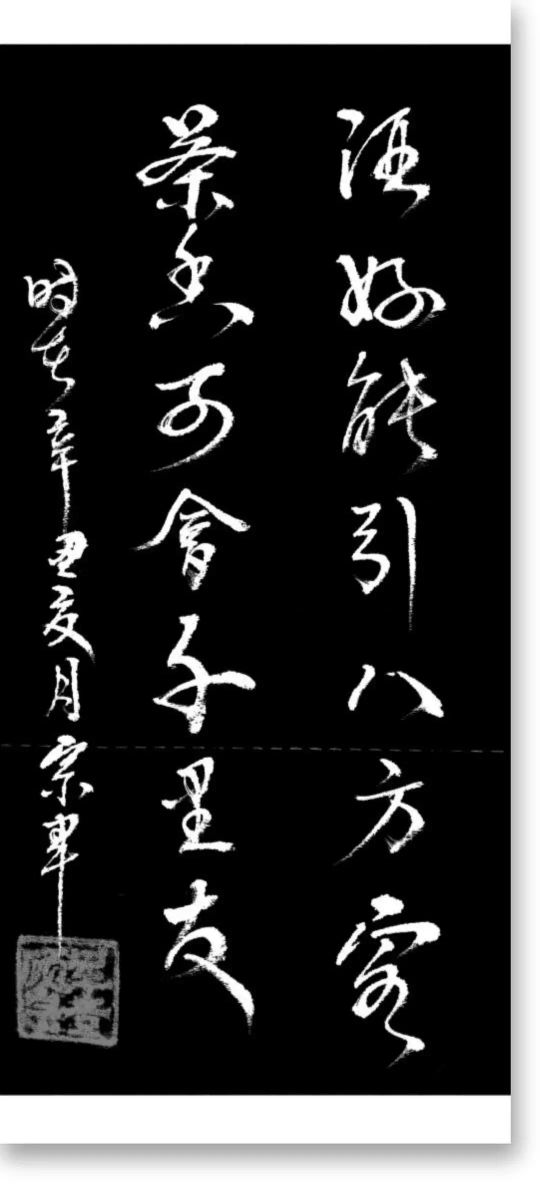 酒好能引八方客
茶香可會千里友
时在辛丑夏月宗